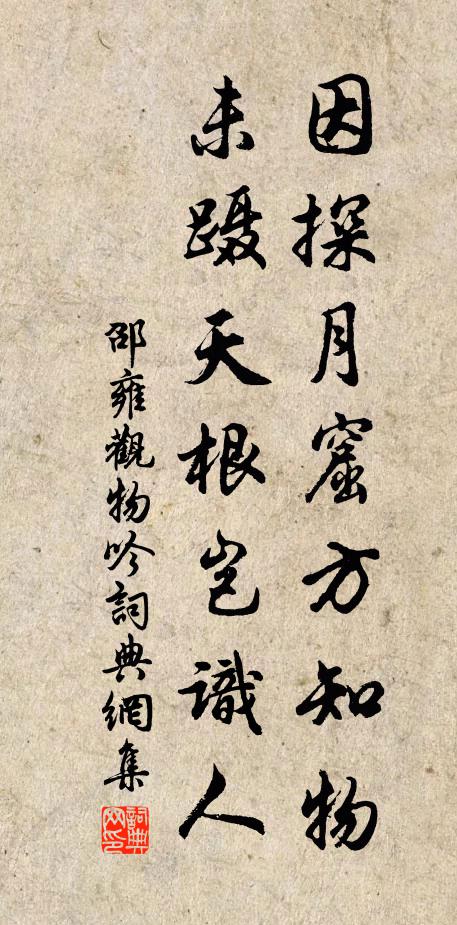 因探月窟方知物
未蹑天根岂識人
邵雍觀物吟詞典網集
詞典网印